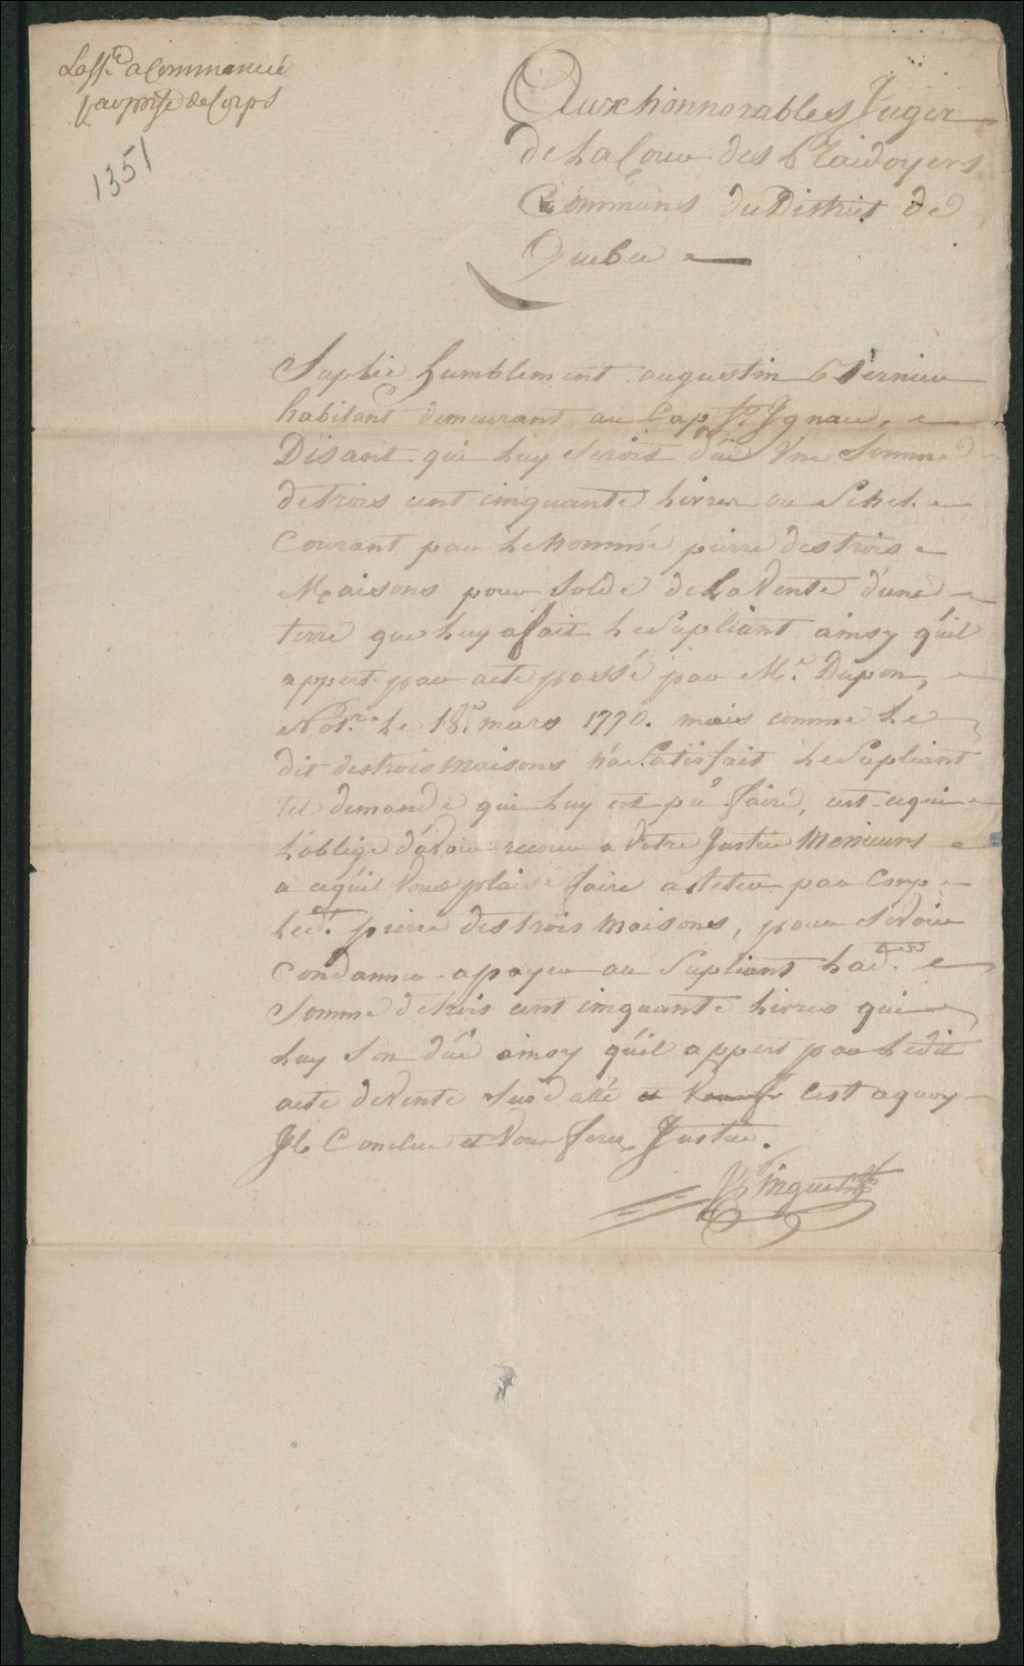 a Commancé
par prise de Corps
1351
Aux honnorables Juges
de La Cour des Plaidoyers
Communs du District de
Quebec
Suplie humblement augustin Bernier
habitant demeurant au Cap St. Ignace,
Disant qui luy seroit dûe Une Somme
de trois cent cinquante livres ou Schel.
Courant par le nommé pierre des trois
Maisons pour Solde de La Vente d'une
terre que luy a fait le Supliant ainsy qu'il
appert par acte passé par Me. Dupon,
Notre. le 18e. mars 1770. mais comme le
dit des trois maisons n'a Satisfait le Supliant
demande qui luy est pû faire, cest cequi
l'oblige d'avoir recour a Votre Justice Messieurs
a cequ'il Vous plaise faire arreter par Corp
led. pierre des trois maisons, pour se Voir
Condamner a payer au Supliant lad.
Somme de trois cent cinquante livres qui
luy son dûe ainsy qu'il appert par ledit
acte de Vente Susdatté et Cest a quoy
Il Conclue et Vous ferez Justice.